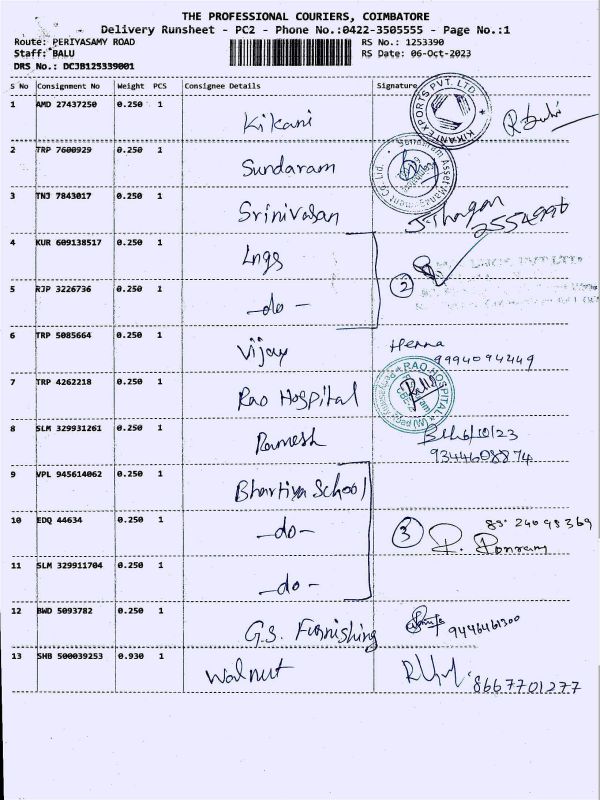 THE PROFESSIONAL COURIERS, COIMBATORE
Delivery Runsheet - PC2 - Phone No.:0422-3505555 - Page No.:1
Route: PERIYASAMY ROAD RS No.: 1253390
Staff: BALU RS Date: 06-Oct-2023
DRS No.: DCJB125339001
S No Consignment No Weight PCS Consignee Details Signature
1 AMD 27437250 0.250 1 Kikani KIKANI EXPORTS PVT. LTD.
2 TRP 7600929 0.250 1 Sundaram Sundaram Asset Management Co Ltd.
3 TNJ 7843017 0.250 1 Srinivasan
4 KUR 609138517 0.250 1 Lngs
5 RJP 3226736 0.250 1 -do- 2
6 TRP 5085664 0.250 1 Vijay Henna
9994094449
7 TRP 4262218 0.250 1 Rao Hospital RAO HOSPITAL
8 SLM 329931261 0.250 1 Ramesh 6/10/23
9344608874
9 VPL 945614062 0.250 1 Bhartiya School
10 EDQ 44634 0.250 1 -do- 3
11 SLM 329911704 0.250 1 -do-
12 BWD 5093782 0.250 1 G.S. Furnishing 9446461300
13 SHB 500039253 0.930 1 Walnut 8667701277